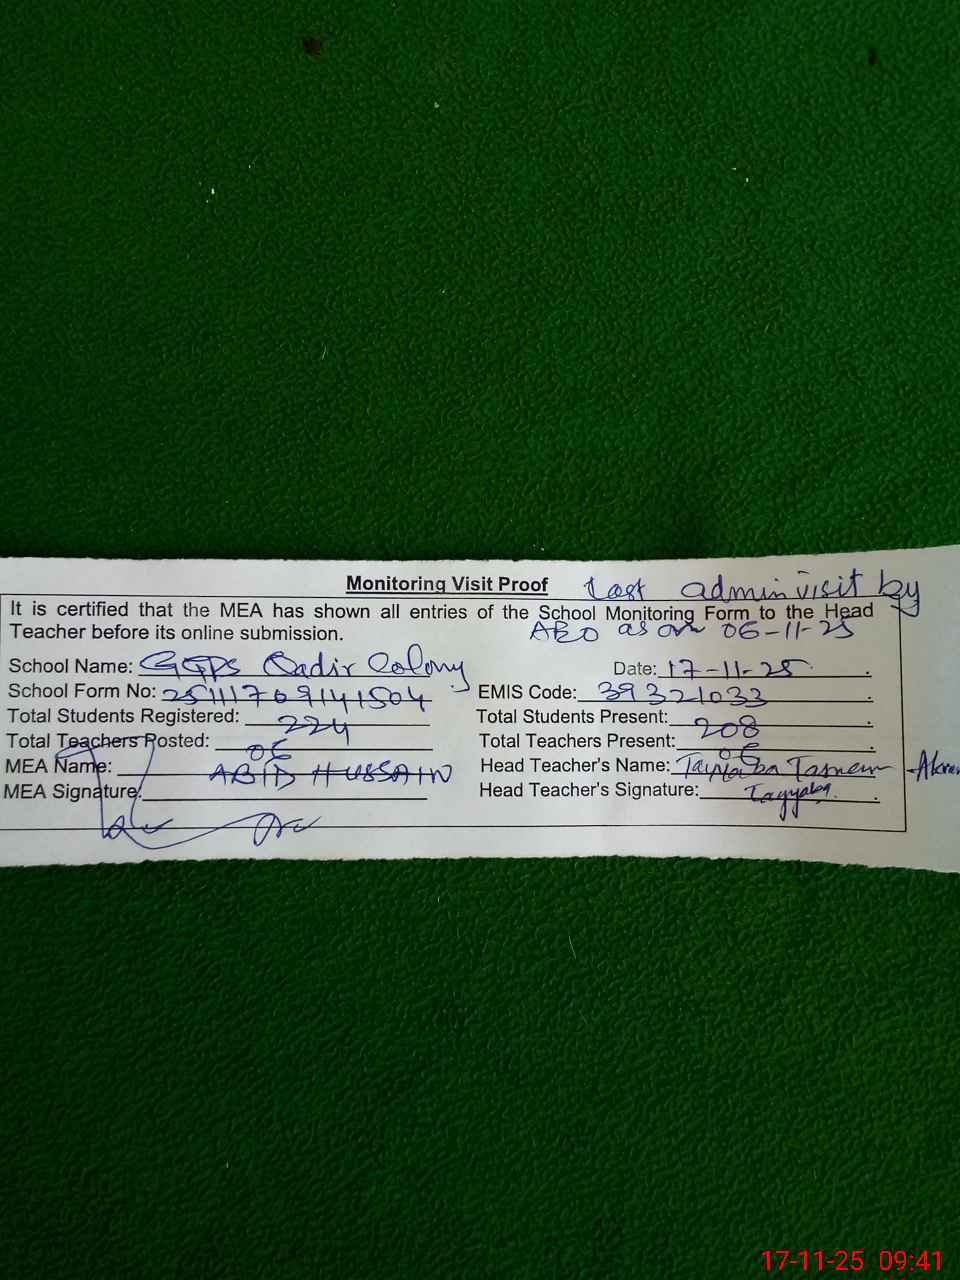 Monitoring Visit Proof Last admin visit by
It is certified that the MEA has shown all entries of the School Monitoring Form to the Head
Teacher before its online submission. AEO as on 06-11-25
School Name: GGPS Qadir Colony Date: 17-11-25.
School Form No: 25111709141504 EMIS Code: 39321033
Total Students Registered: 224 Total Students Present: 208
Total Teachers Posted: 06 Total Teachers Present: 06
MEA Name: ABID HUSSAIN Head Teacher's Name: Tasneem
MEA Signature: Head Teacher's Signature: Tayyaba.
17-11-25 09:41